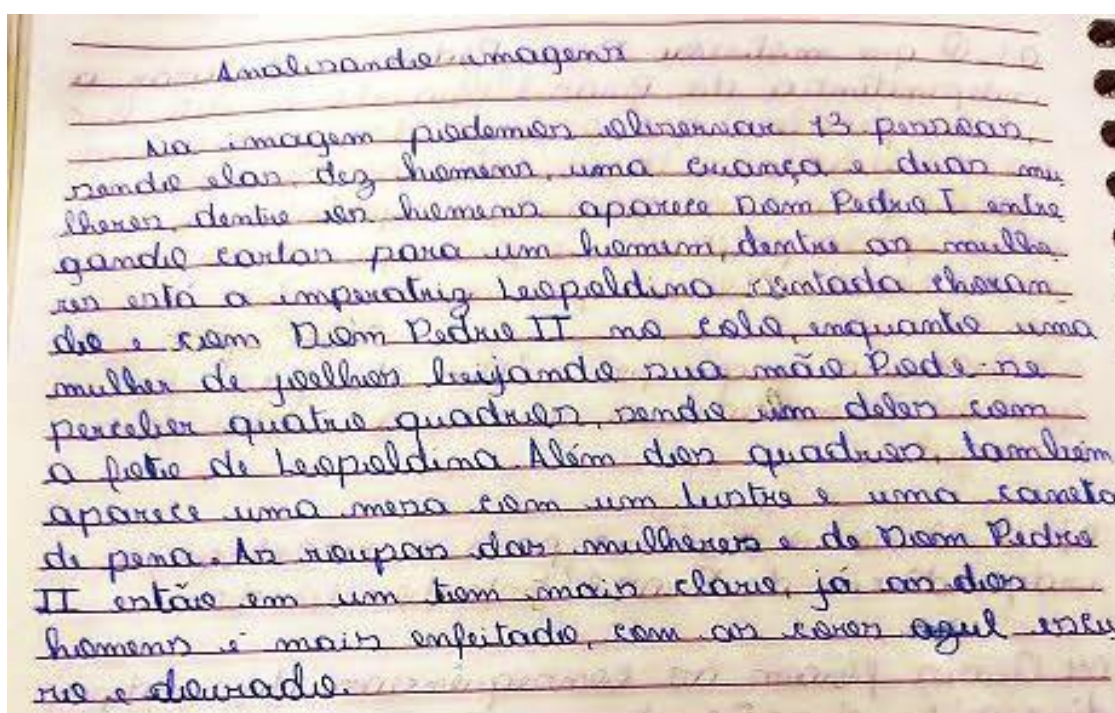 Analisando imagens
Na imagem podemos observar 13 pessoas,
sendo elas, dez homens, uma criança e duas mu
lheres, dentre os homens aparece Dom Pedro I entre
gando cartas para um homem, dentre as mulhe
res está a imperatriz Leopoldina sentada choran
do e com Dom Pedro II no colo, enquanto uma
mulher de joelhos beijando sua mão. Pode-se
perceber quatro quadros, sendo um deles com
a foto de Leopoldina. Além dos quadros, também
aparece uma mesa com um lustre e uma caneta
de pena. As roupas das mulheres e de Dom Pedro
II estão em um tom mais claro, já as dos
homens é mais enfeitado, com as cores azul escu
ro e dourado.